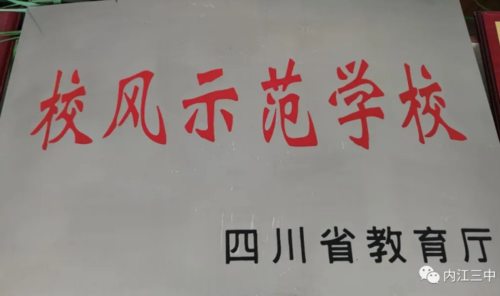 校风示范学校
四川省教育厅
内江三中